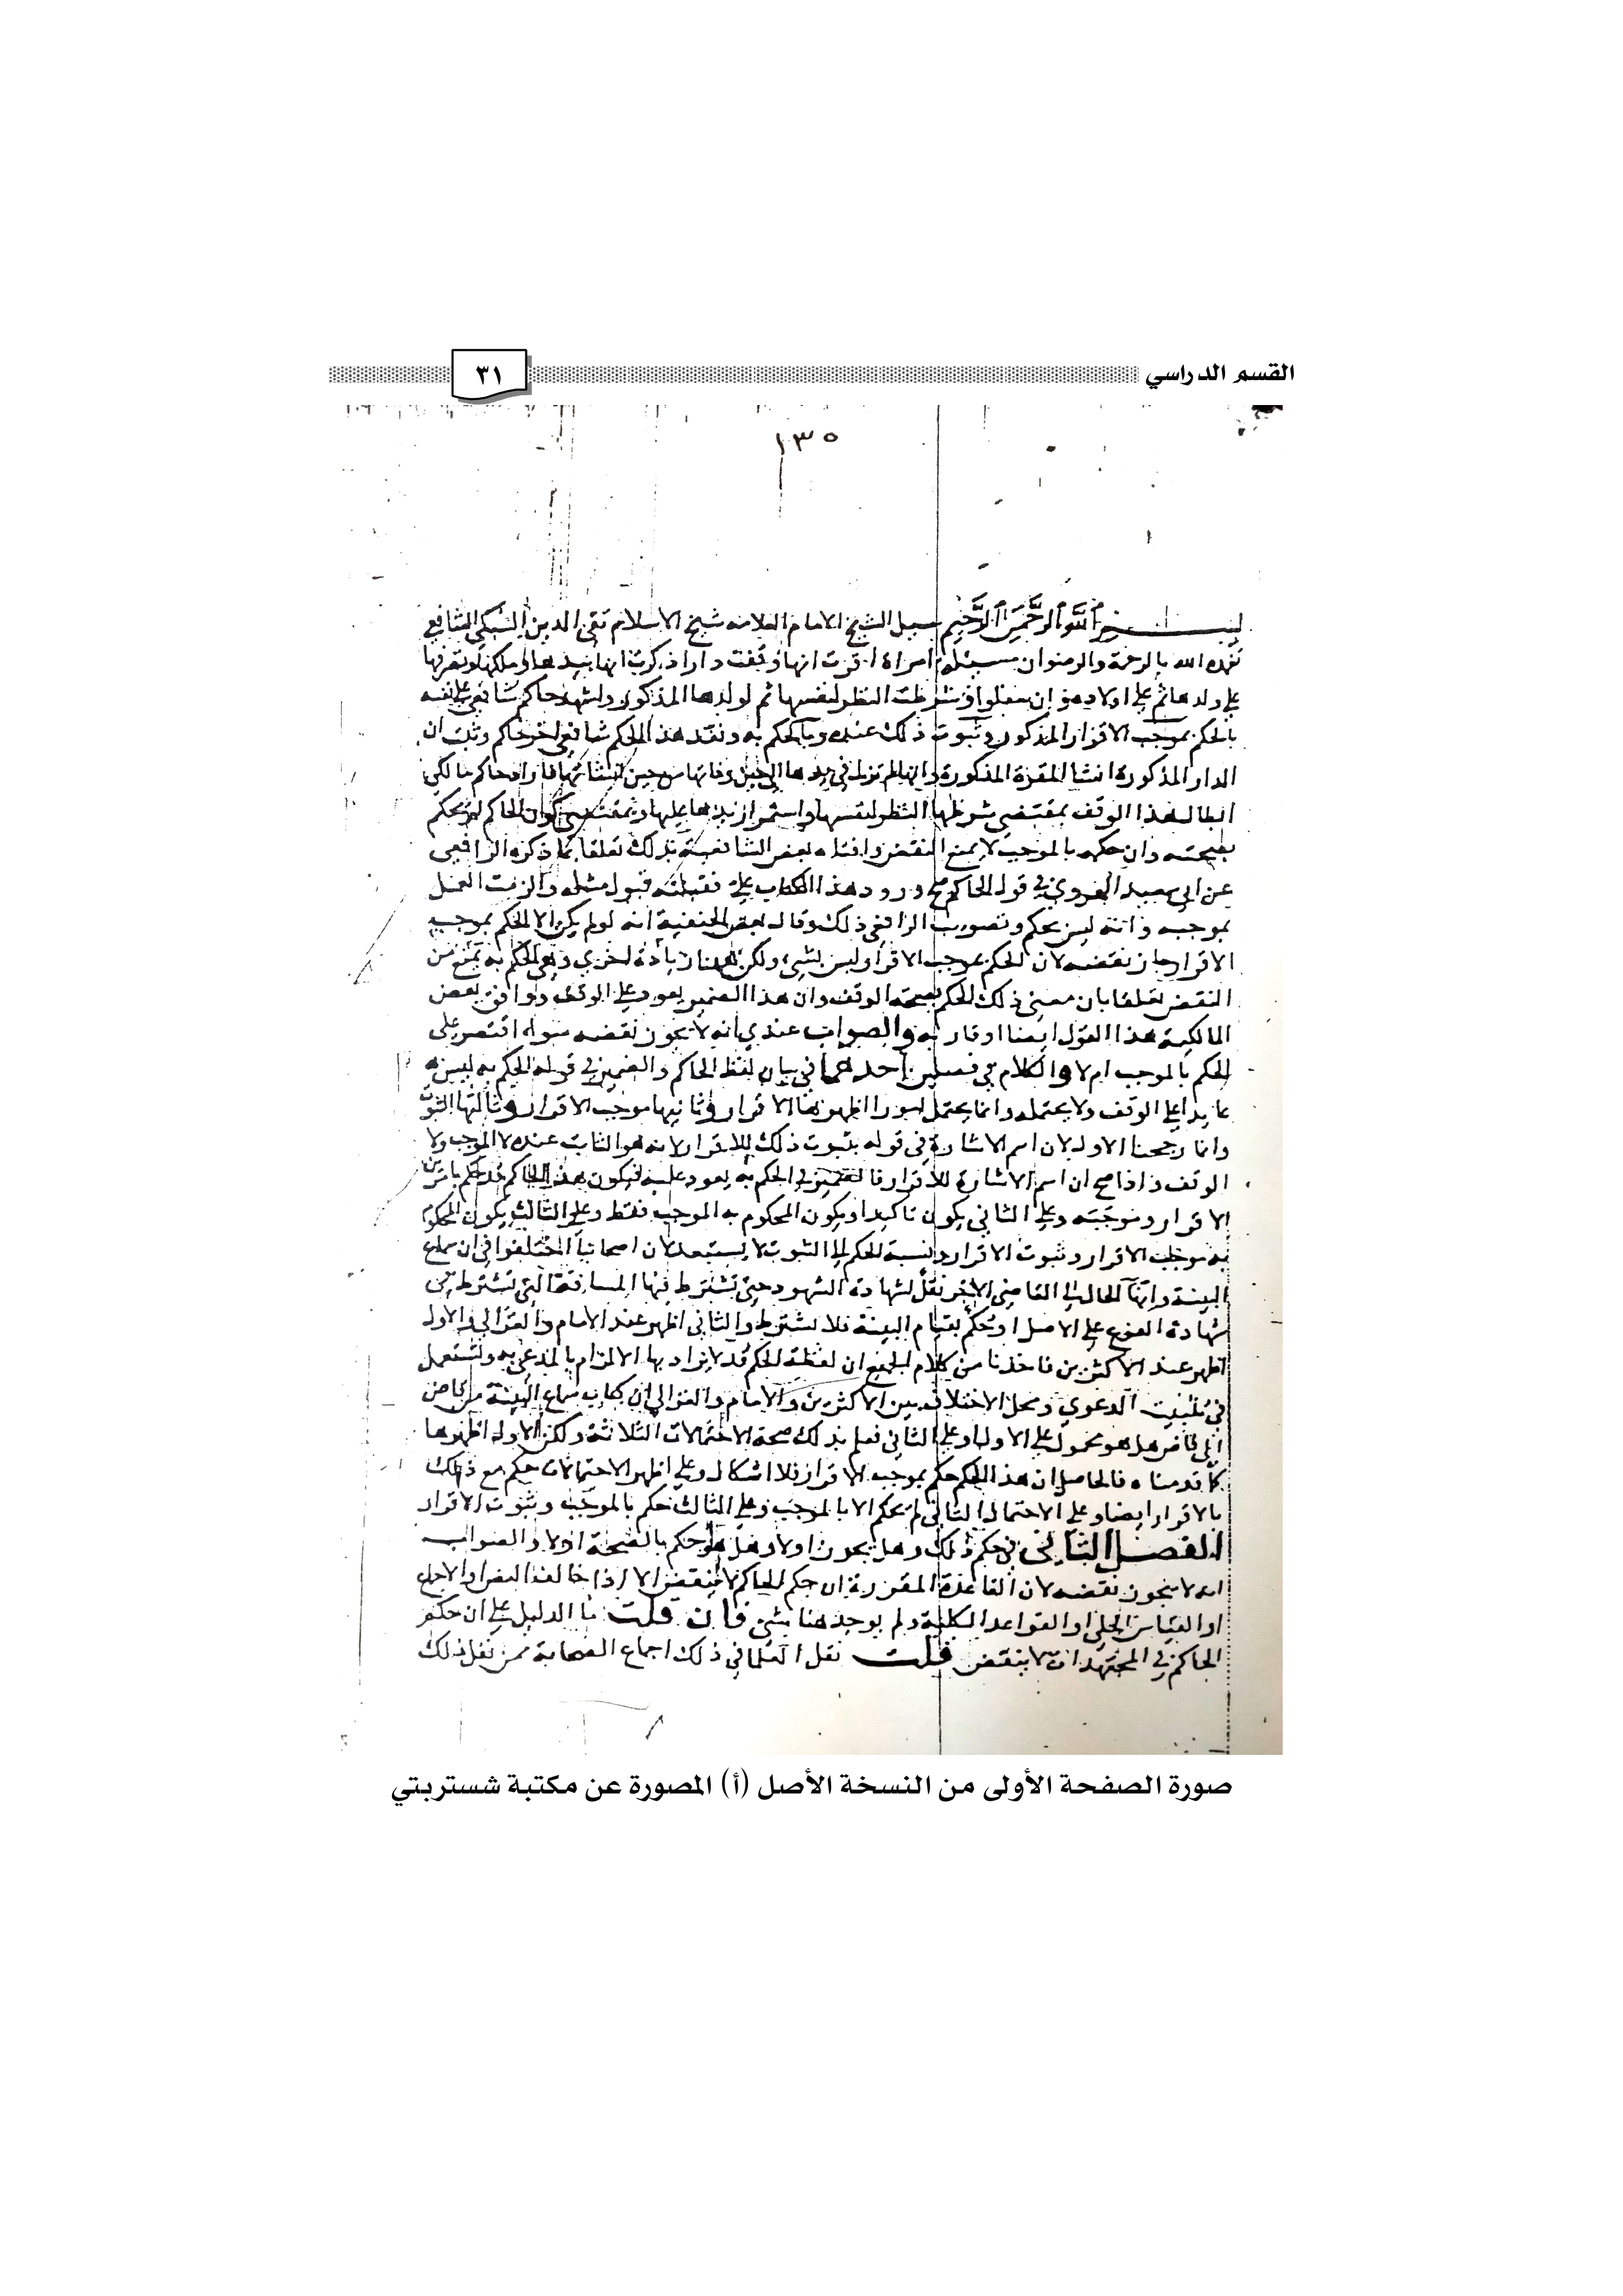 القسم الدراسي
٣١
١٣٥
بسم الله الرحمن الرحيم سيل الشيخ الامام العلامه شيخ الاسلام تقى الدين السبكي الشافعي
تغمده الله بالرحمة والرضوان مسئلة امراة اقرت انها وقفت دارا ذكرت انها بيدها وملكها وتصرفها
علي ولدها ثم علي اولاده وان سفلوا وشرطت النظر لنفسها ثم لولدها المذكور واشهد حاكم شافعي علي نفسه
بالحكم بموجب الاقرار المذكور وثبوت ذلك عنده وبالحكم به ونفذ هذا الحكم شافعي اخر وثبت ان
الدار المذكورة انشا المقرة المذكورة وانها لم تزل في يدها الي حين وفاتها من حين انشائها فاراد حاكم مالكي
ابطال هذا الوقف بمقتضي شرطها النظر لنفسها واستمرار يدها عليها وبمقتضي كون الحاكم لم يحكم
بصحته وان حكمه بالموجب لا يمنع النقض وافتاه بعض الشافعية بذلك تعلقا بما ذكره الرافعي
عن ابي سعيد الهروي في قول الحاكم صح ورود هذا الكتاب علي فقبلته قبول مثله والزمت العمل
بموجبه وانه ليس بحكم وتصويب الرافعي ذلك وقال بعض الحنفية انه لو لم يكن الا الحكم بموجب
الاقرار جاز نقضه لان الحكم بموجب الاقرار ليس بشي ولكن هنا زيادة اخري وهي الحكم به تمنع من
النقض تعلقا بان معني ذلك الحكم بصحة الوقف وان هذا الضمير يعود علي الوقف ووافق بعض
المالكية هذا القول ايضا او قاربه والصواب عندي انه لا يجوز نقضه سواء اقتصر علي
الحكم بالموجب ام لا والكلام في فصلين احدهما في بيان لفظ الحاكم والضمير في قوله الحكم به ليس
عايدا علي الوقف ولا يحتمله وانما يحتمل امورا اظهرها الاقرار وثانيها موجب الاقرار وثالثها الثبوت
وانما رجحنا الاول لان اسم الاشارة في قوله بثبوت ذلك للاقرار لانه هو الثابت عنده لا الموجب ولا
الوقف واذا صح ان اسم الاشارة للاقرار فالضمير في الحكم به يعود عليه فيكون هذا الحاكم قد حكم بامرين
الاقرار وموجبه وعلي الثاني يكون تاكيدا ويكون المحكوم به الموجب فقط وعلي الثالث يكون المحكوم
به موجب الاقرار وثبوت الاقرار ونسبة الحكم الي الثبوت لا يستبعد لان اصحابنا اختلفوا في ان سماع
البينة وانها الحال الي القاضي الاخر نقل لشهادة الشهود حتي تشترط فيها المسافة التي تشترط في
شهادة الفرع علي الاصل او حكم بقيام البينة فلا تشترط والثاني اظهر عند الامام والغزالي والاول
اظهر عند الاكثرين فاخذنا من كلام الجميع ان لفظة الحكم قد لا يراد بها الالزام بالمدعي به وتستعمل
في تثبيت الدعوي ومحل الاختلاف بين الاكثرين والامام والغزالي ان كتاب سماع البينة من قاض
الي قاض هل هو محمول علي الاول او علي الثاني فعلم بذلك صحة الاحتمالات الثلاثة ولكن الاول اظهرها
كما قدمناه فالحاصل ان هذا الحكم حكم بموجب الاقرار بلا اشكال وعلي اظهر الاحتمالات حكم مع ذلك
بالاقرار ايضا وعلي الاحتمال الثاني لم يحكم الا بالموجب وعلي الثالث حكم بالموجب وثبوت الاقرار
الفصل الثاني في حكم ذلك وهل يجوز اولا وهل هو حكم بالصحة اولا والصواب
انه لا يجوز نقضه لان القاعدة المقررة ان حكم الحاكم لا ينقض الا اذا خالف النص او الاجماع
او القياس الجلي او القواعد الكلية ولم يوجد هنا شي فان قلت ما الدليل علي ان حكم
الحاكم في المجتهدات لا ينقض قلت نقل العلما في ذلك اجماع الصحابة ممن نقل ذلك
صورة الصفحة الأولى من النسخة الأصل (أ) المصورة عن مكتبة شستربتي